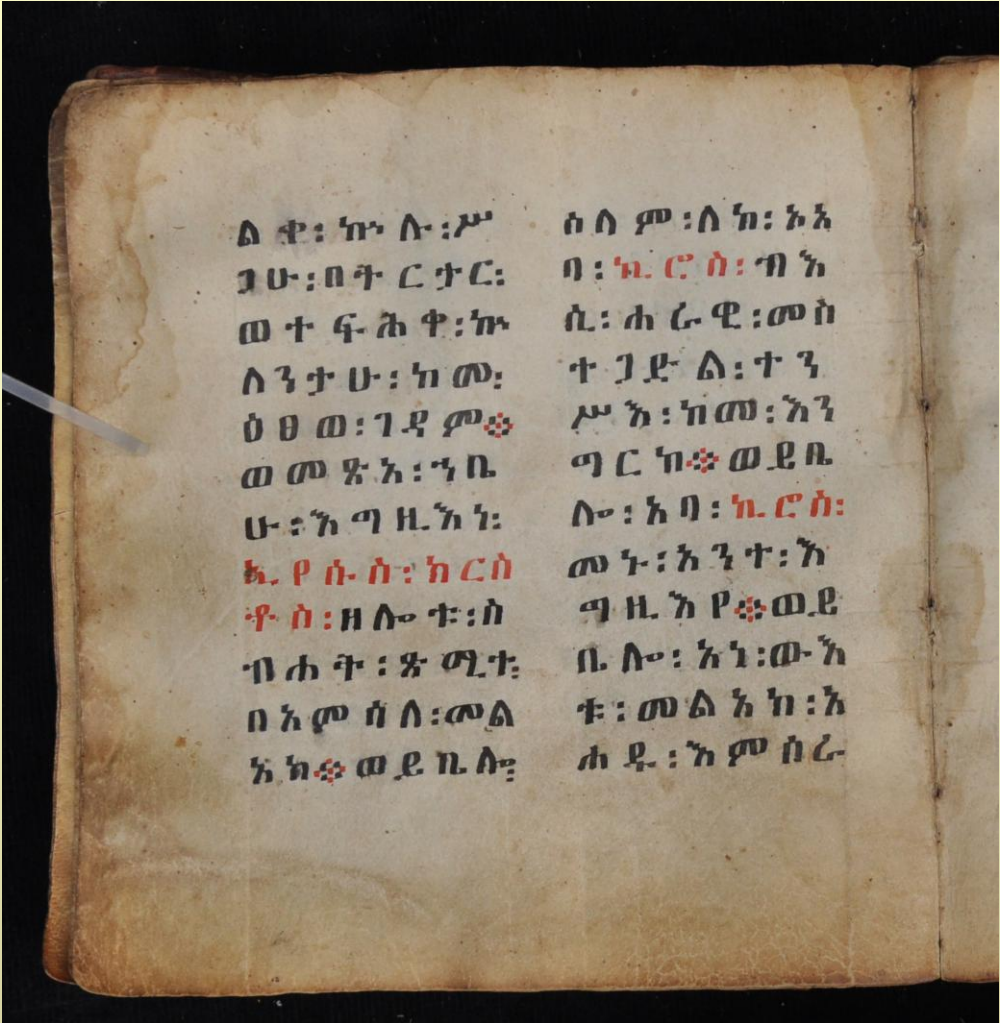 ልቀ፡ ኵሉ፡ ሥ
ጋሁ፡ በትርታር፡
ወተፍሕቀ፡ ኵ
ለንታሁ፡ ከመ፡
ዕፀወ፡ ገዳም፨
ወመጽአ፡ ኀቤ
ሁ፡ እግዚእነ፡
ኢየሱስ፡ ክርስ
ቶስ፡ ዘሎቱ፡ ስ
ብሐት፡ ጽሚተ፡
በአምሳለ፡ መል
አክ፨ ወይቤሎ፡
ሰላም፡ ለከ፡ ኦአ
ባ፡ ኪሮስ፡ ብእ
ሲ፡ ሐራዊ፡ መስ
ተጋድል፡ ተን
ሥእ፡ ከመ፡ እን
ግርከ፨ ወይቤ
ሎ፡ አባ፡ ኪሮስ፡
መኑ፡ አንተ፡ እ
ግዚእየ፨ ወይ
ቤሎ፡ አነ፡ ውእ
ቱ፡ መልአክ፡ አ
ሐዱ፡ እምሰራ